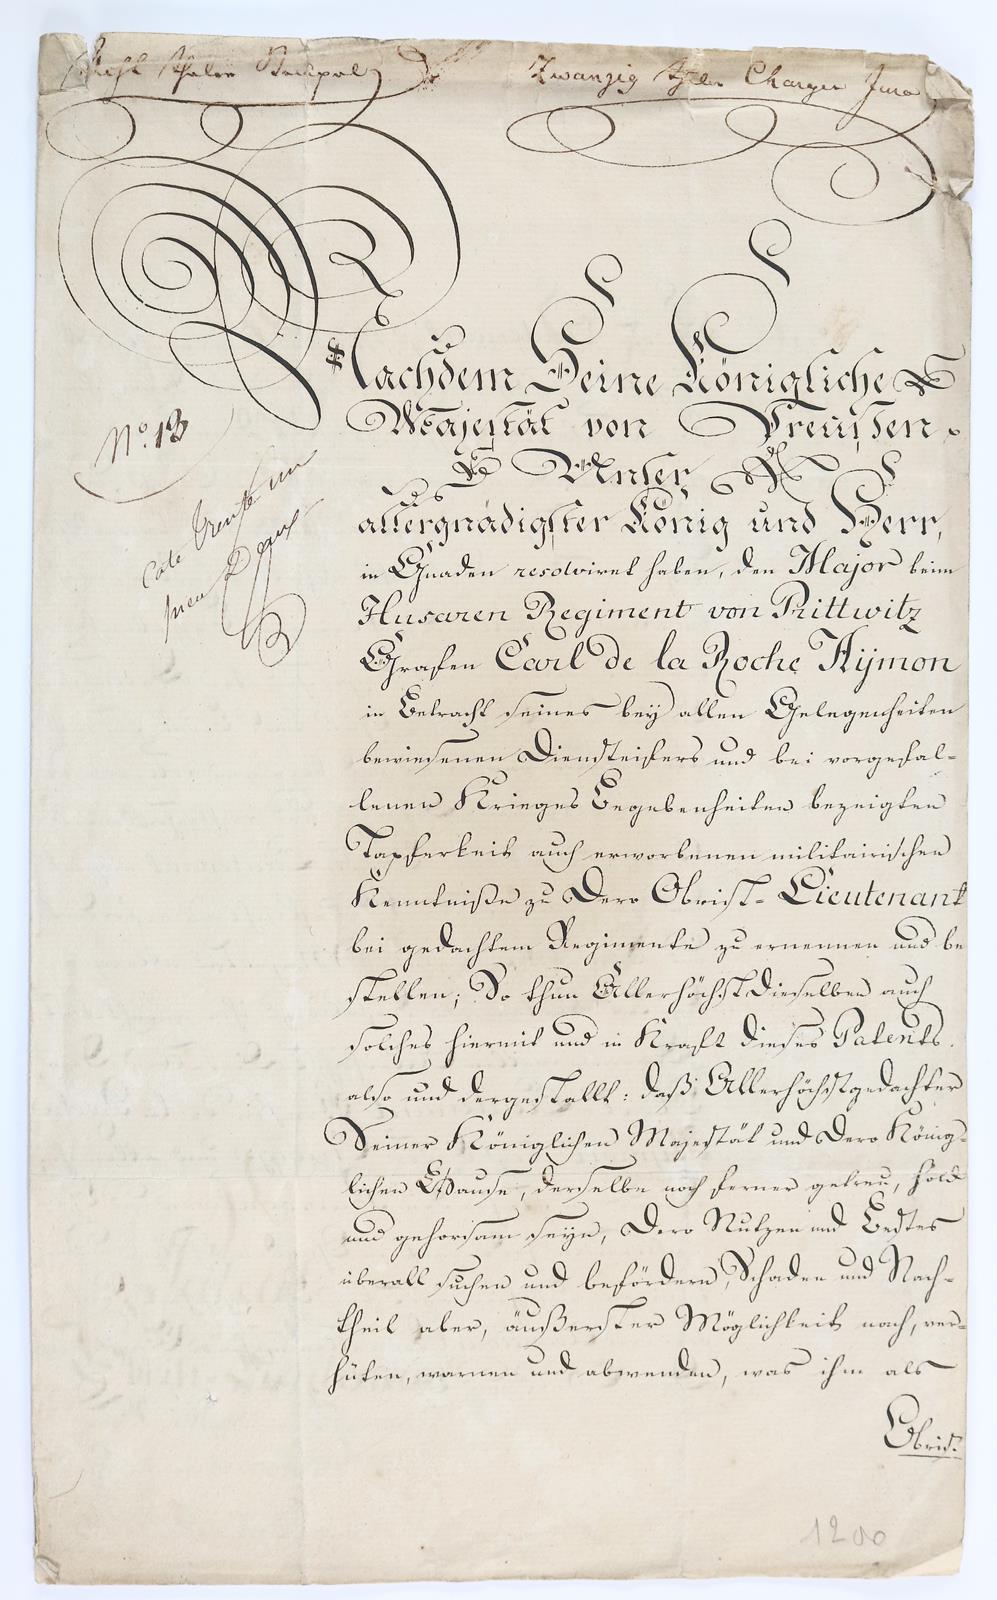 Acht Thaler Stempel
Zwanzig Thlr Charger Jura
No. 13
Cote trente un
Nachdem Seine Königliche
Majestät von Preußen
Unser
allergnädigster König und Herr,
in Gnaden resolviret haben, den Major beim
Husaren Regiment von Prittwitz
Grafen Carl de la Roche Aijmon
in Betracht seines bey allen Gelegenheiten
bewiesenen Diensteifers und bei vorgefal-
lenen Krieges Begebenheiten bezeigten
Tapferkeit auch erworbenen militairischen
Kenntniße zu Dero Obrist-Lieutenant
bei gedachtem Regimente zu ernennen und be
stellen; So thun Allerhöchst Dieselben auch
solches hiermit und in Kraft dieses Patents.
also und dergestallt: daß Allerhöchstgedachter
Seiner Königlichen Majestät und Dero König-
lichen Hause, derselbe noch ferner getreu, hold
und gehorsam seyn, Dero Nutzen und Bestes
überall suchen und befördern, Schaden und Nach-
theil aber, äußerster Möglichkeit nach, ver-
hüten, warnen und abwenden, was ihm als
Obrist
1200